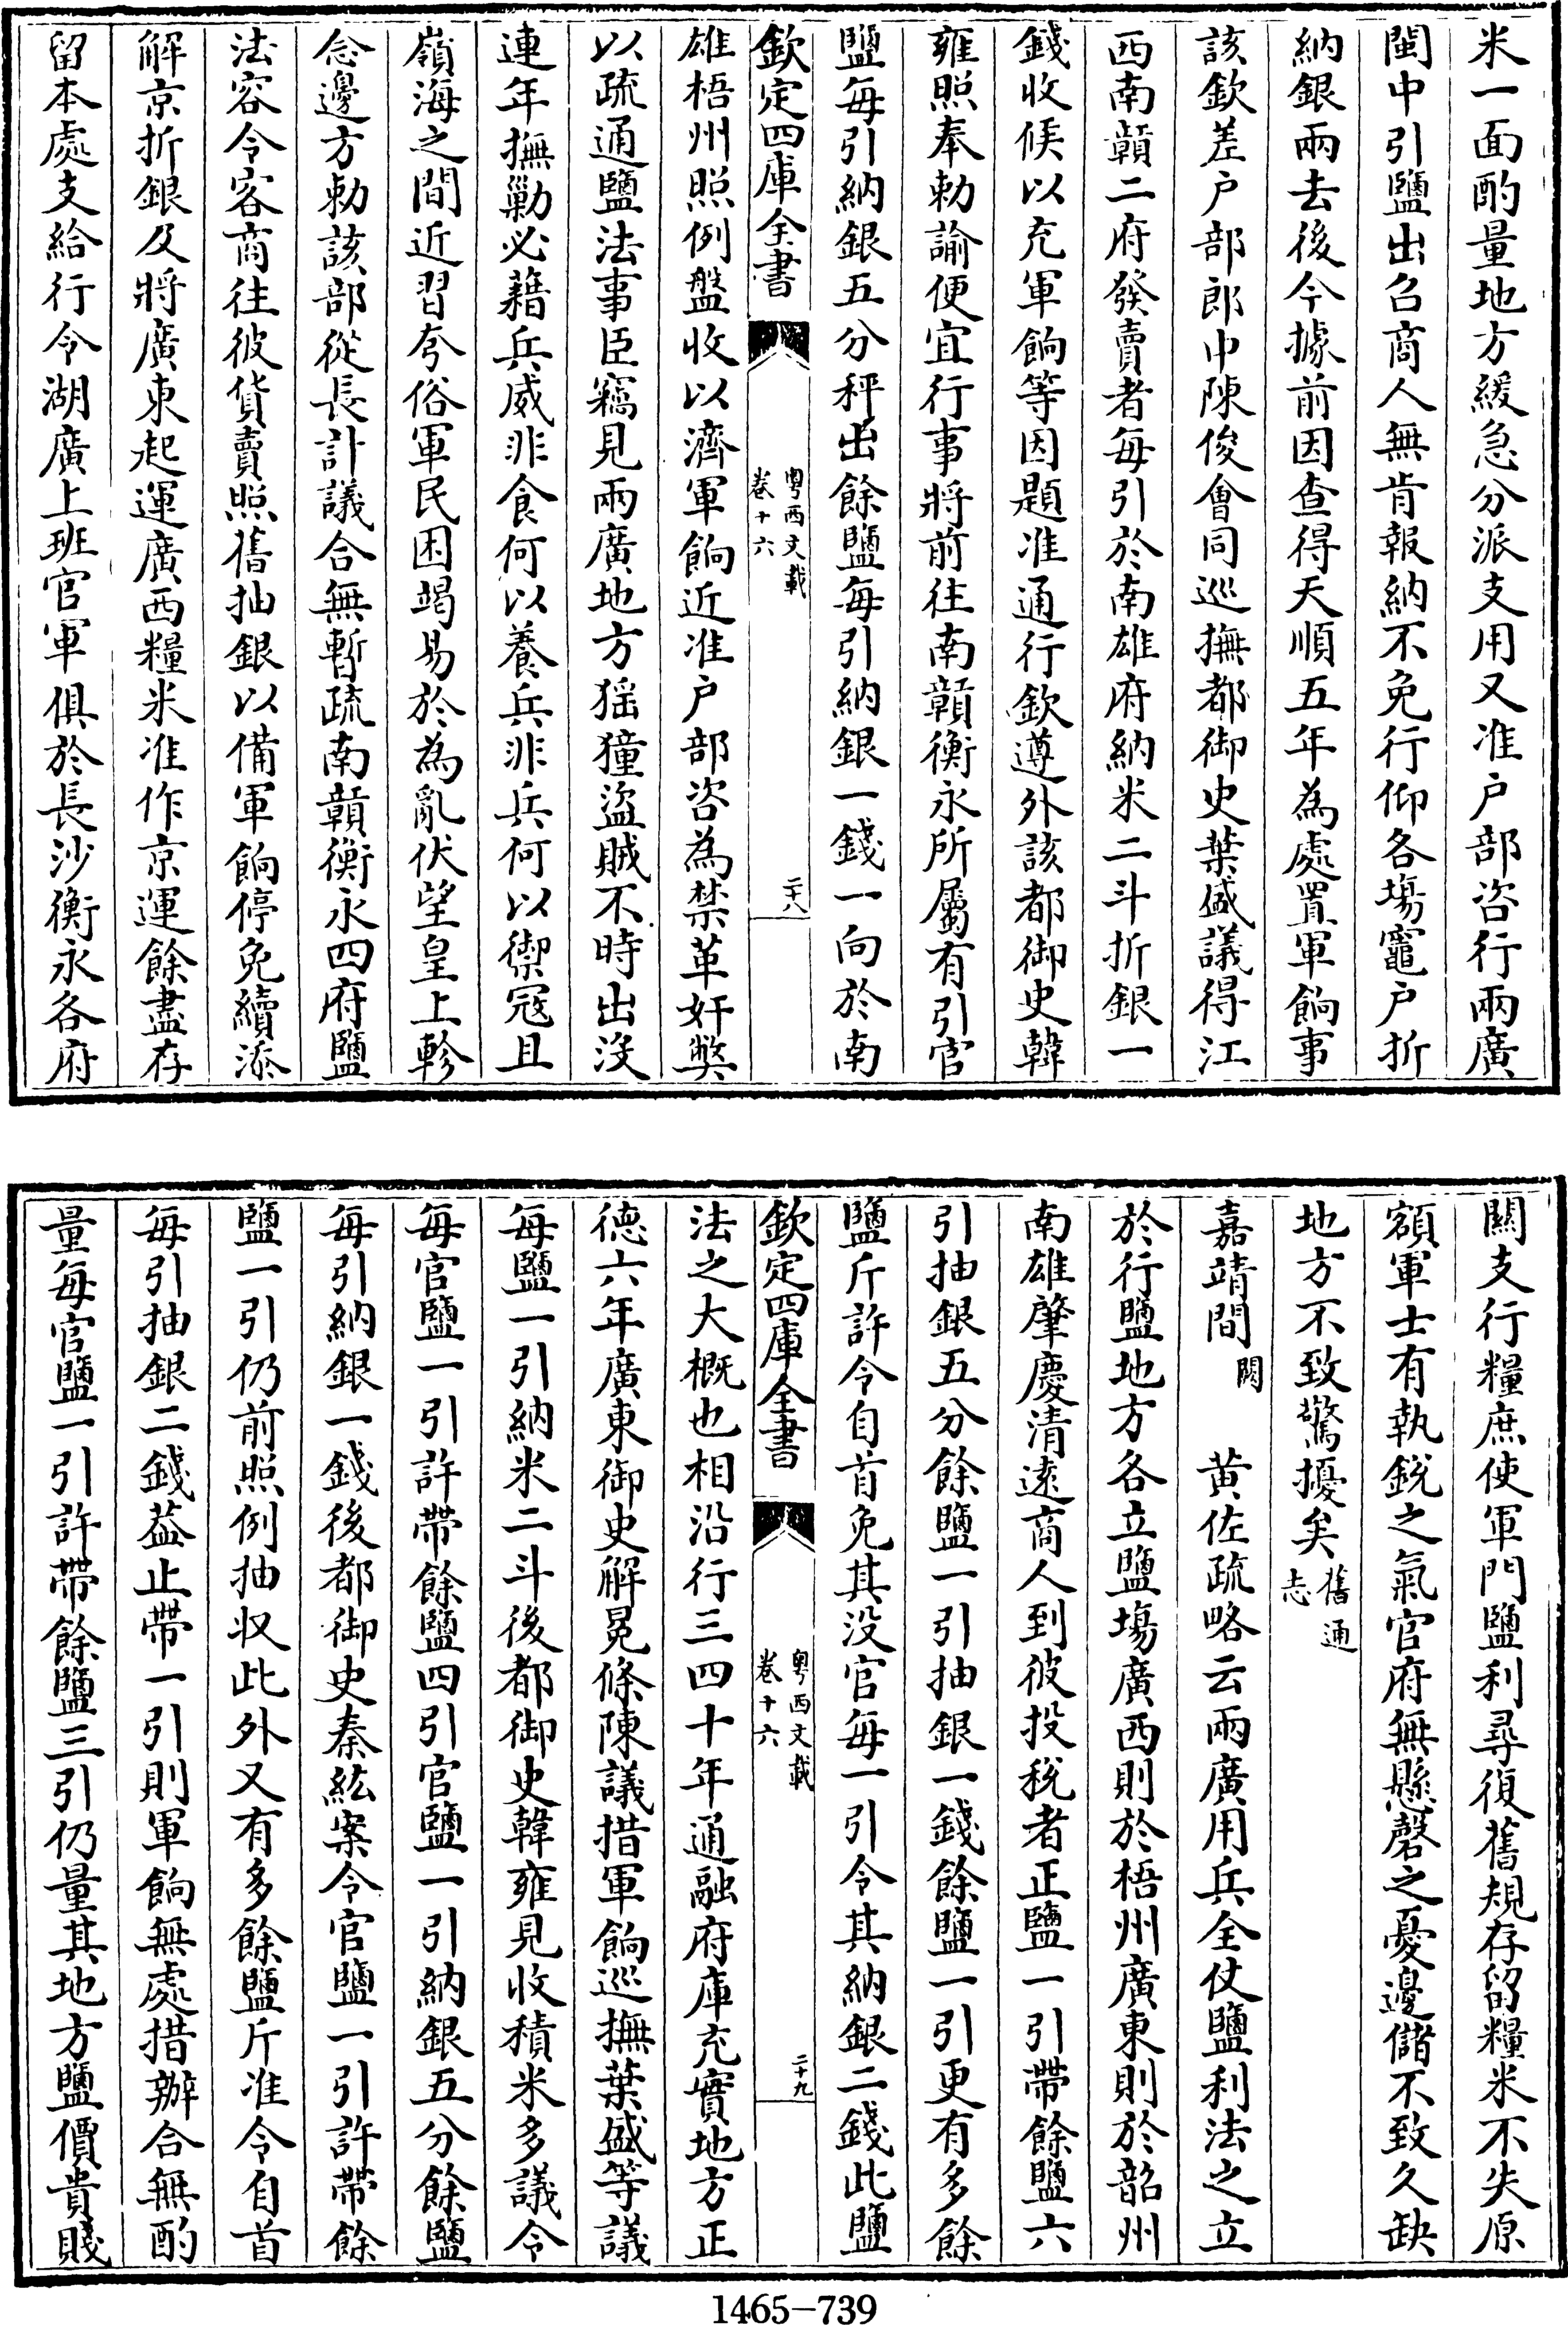 米一面酌量地方緩急分派支用又准户部咨行兩廣
閩中引鹽出召商人無肯報納不免行仰各塲竈户折
納銀兩去後今據前因查得天順五年為處置軍餉事
該欽差户部郎中陳俊會同巡撫都御史葉盛議得江
西南贛二府發賣者每引於南雄府納米二斗折銀一
錢收候以充軍餉等因題准通行欽遵外該都御史韓
雍照奉勅諭便宜行事將前往南贛衡永所屬有引官
鹽每引納銀五分秤出餘鹽每引納銀一錢一向於南
欽定四庫全書
粤西文載
卷十六
二十八
雄梧州照例盤收以濟軍餉近准户部咨為禁革奸弊
以疏通鹽法事臣竊見兩廣地方猺獞盜賊不時出没
連年撫勦必藉兵威非食何以養兵非兵何以禦冦且
嶺海之間近習夸俗軍民困竭易於為亂伏望皇上軫
念邊方勅該部從長計議合無暫疏南贛衡永四府鹽
法容令客商往彼貨賣照舊抽銀以備軍餉停免續添
解京折銀及將廣東起運廣西糧米准作京運餘盡存
留本處支給行令湖廣上班官軍俱於長沙衡永各府
關支行糧庶使軍門鹽利尋復舊規存留糧米不失原
額軍士有執銳之氣官府無懸磬之憂邊儲不致久缺
地方不致驚擾矣
舊通
志
嘉靖間
闕
黄佐疏略云兩廣用兵全仗鹽利法之立
於行鹽地方各立鹽塲廣西則於梧州廣東則於韶州
南雄肇慶清遠商人到彼投稅者正鹽一引帶餘鹽六
引抽銀五分餘鹽一引抽銀一錢餘鹽一引更有多餘
鹽斤許令自首免其没官每一引令其納銀二錢此鹽
欽定四庫全書
粤西文載
卷十六
二十九
法之大概也相沿行三四十年通融府庫充實地方正
德六年廣東御史解冕條陳議措軍餉巡撫葉盛等議
每鹽一引納米二斗後都御史韓雍見收積米多議令
每官鹽一引許帶餘鹽四引官鹽一引納銀五分餘鹽
每引納銀一錢後都御史秦紘案令官鹽一引許帶餘
鹽一引仍前照例抽収此外又有多餘鹽斤准令自首
每引抽銀二錢葢止帶一引則軍餉無處措辦合無酌
量每官鹽一引許帶餘鹽三引仍量其地方鹽價貴賤
1465-739